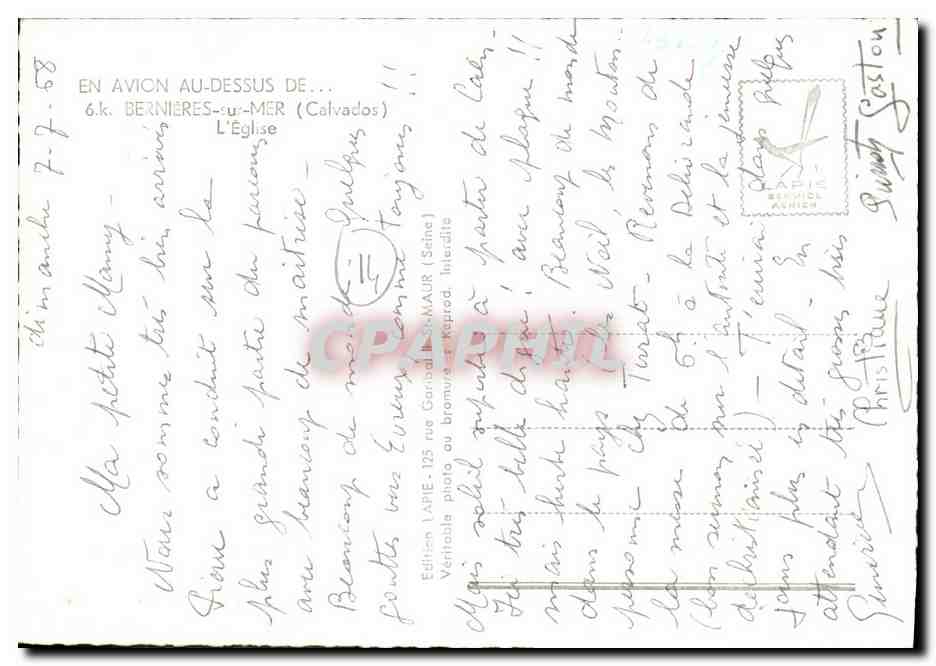 EN AVION AU-DESSUS DE...
6.k. BERNIÈRES-sur-MER (Calvados)
L'Église
Edition LAPIE - 125 rue Garibaldi St-MAUR (Seine)
Véritable photo au bromure - Reprod. Interdite
LAPIE
SERVICE
AÉRIEN
CPAPHIL
dimanche 7-7-68
Ma petite Mamy -
Nous sommes très bien arrivés
Pierre a conduit sur la
plus grande partie du parcours
avec beaucoup de maitrise -
Beaucoup de monde. Quelques
gouttes vers Evreux comme toujours !!
Mais soleil superbe à partir de
Ici très belle digue ! avec plage !!
mais haute. Beaucoup de monde
dans le pays
personne chez Turat - Revenons de
la messe de 6h à la Délivrande
(bon sermon sur l'autorité et la jeunesse
déchristianisée) - T'écrirai dans quelques
jours plus en détail - En
attendant très grosses bises
Geneviève Christiane
Pierrot Gaston